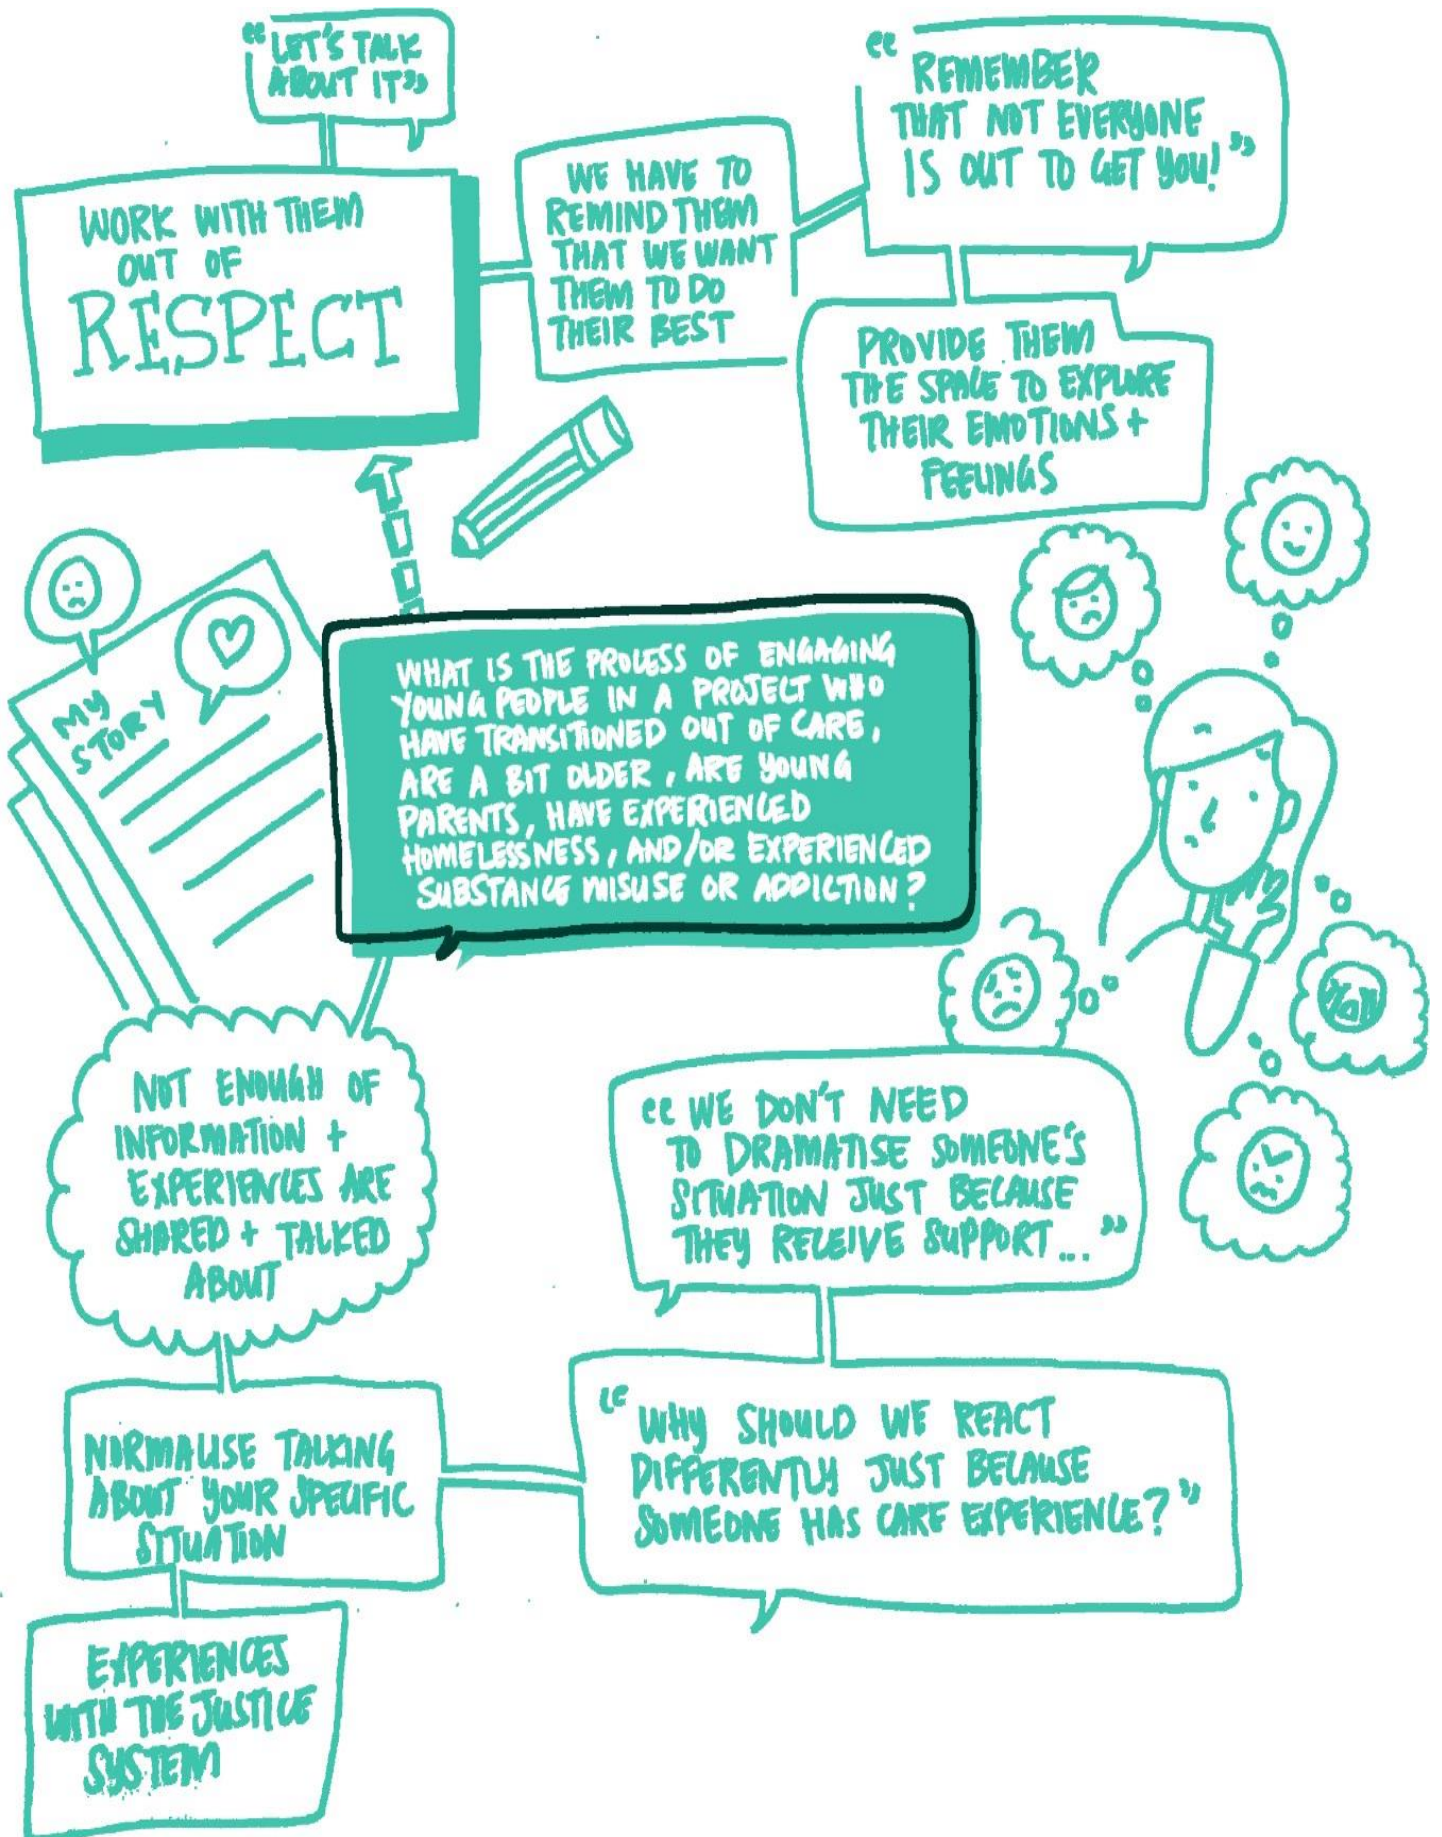 “LET'S TALK
ABOUT IT”
WORK WITH THEM
OUT OF
RESPECT
WE HAVE TO
REMIND THEM
THAT WE WANT
THEM TO DO
THEIR BEST
“REMEMBER
THAT NOT EVERYONE
IS OUT TO GET YOU!”
PROVIDE THEM
THE SPACE TO EXPLORE
THEIR EMOTIONS +
FEELINGS
MY
STORY
WHAT IS THE PROCESS OF ENGAGING
YOUNG PEOPLE IN A PROJECT WHO
HAVE TRANSITIONED OUT OF CARE,
ARE A BIT OLDER, ARE YOUNG
PARENTS, HAVE EXPERIENCED
HOMELESSNESS, AND/OR EXPERIENCED
SUBSTANCE MISUSE OR ADDICTION?
NOT ENOUGH OF
INFORMATION +
EXPERIENCES ARE
SHARED + TALKED
ABOUT
“WE DON'T NEED
TO DRAMATISE SOMEONE'S
SITUATION JUST BECAUSE
THEY RECEIVE SUPPORT...”
NORMALISE TALKING
ABOUT YOUR SPECIFIC
SITUATION
“WHY SHOULD WE REACT
DIFFERENTLY JUST BECAUSE
SOMEONE HAS CARE EXPERIENCE?”
EXPERIENCES
WITH THE JUSTICE
SYSTEM